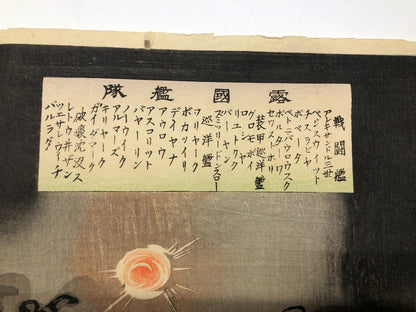 露國艦隊
戰闘艦
アレキサンドル三世
ペレスウイット
チス、ラビヤ
ポベーダ
ペトニパウロウスク
ポルターワ
セワストホリ
装甲巡洋艦
グロモボイ
ロシヤ
リユーリク
バーヤン
ズミツリードンスコー
巡洋艦
ヲリヤーク
ボカツイリ
デイヤナ
アウロウ
アスコリット
バヤーリン
アルマーズ
キリヤーク
ガイダマーク
破損沈没
レトウ井ザン
ツエサレウーチ
バルラダ